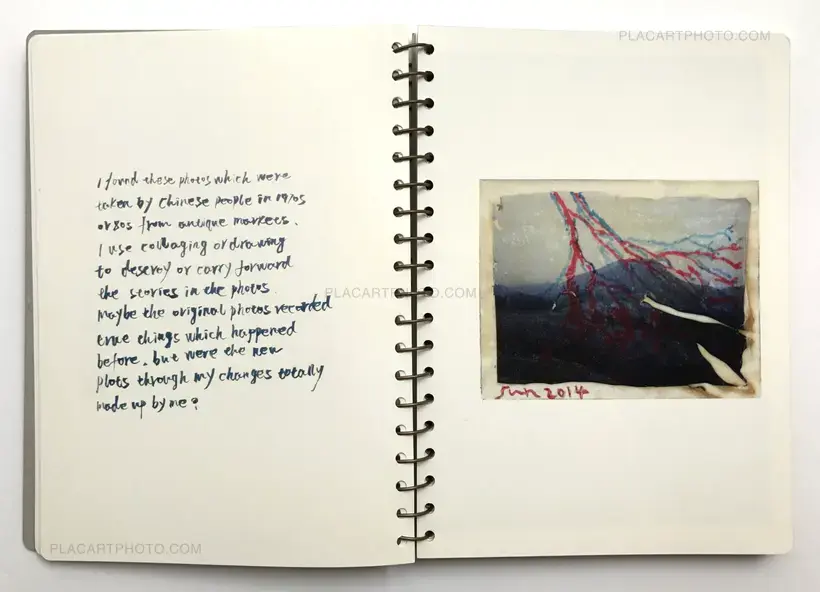 PLACARTPHOTO.COM
I found these photos which were
taken by Chinese people in 1970s
or 80s from antique markets.
I use collaging or drawing
to destroy or carry forward
the stories in the photos.
PLACARTPHOTO.COM
Maybe the original photos recorded
true things which happened
before. but were the new
plots through my changes totally
made up by me?
Sun 2014
PLACARTPHOTO.COM